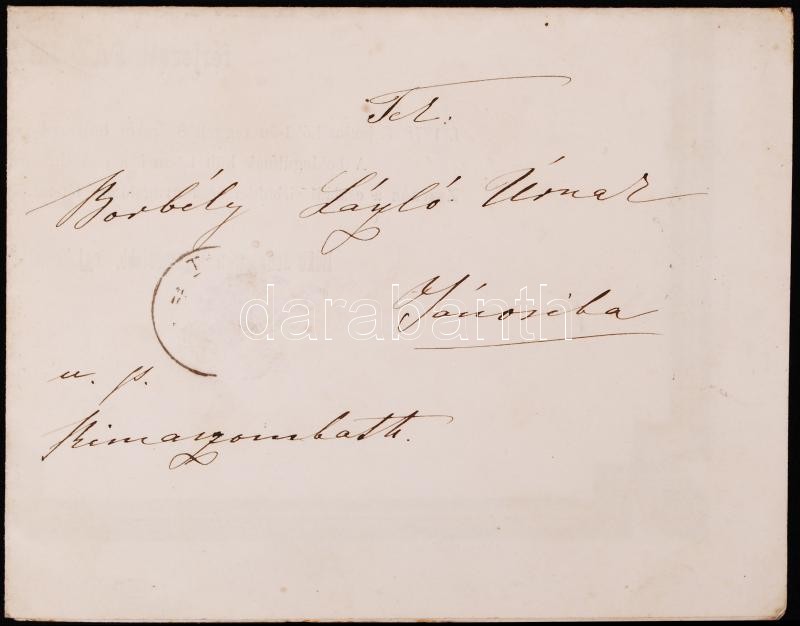 Tek:
Borbély László Úrnak
darabanth
Jánosiba
u. p.
Rimaszombath.